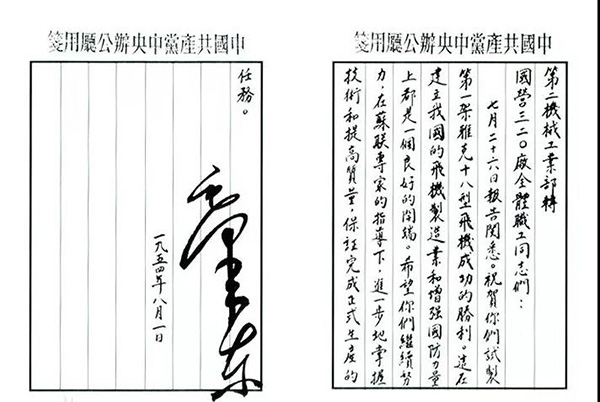 中國共產黨中央辦公廳用箋
第二機械工業部轉
國營三二〇廠全體職工同志們：
七月二十六日報告閱悉。祝賀你們試製
第一架雅克十八型飛機成功的勝利。這在
建立我國的飛機製造業和增強國防力量
上都是一個良好的開端。希望你們繼續努
力，在蘇聯專家的指導下，進一步地掌握
技術和提高質量，保証完成正式生產的
中國共產黨中央辦公廳用箋
任務。
毛澤東
一九五四年八月一日